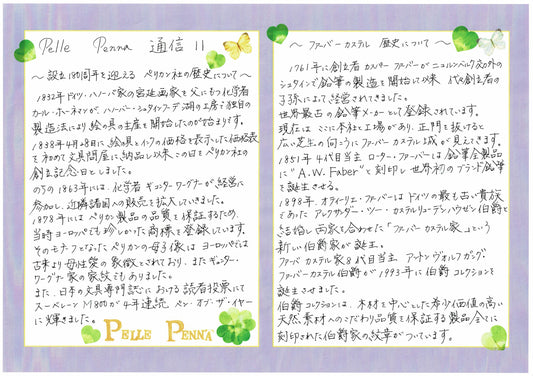 Pelle Penna 通信 11
～設立180周年を迎える ペリカン社の歴史について～
1832年ドイツ・ハノーバ家の宮廷画家を父にもつ化学者
カール・ホーネマンが、ハノーバー・シュタインフーデ湖の工房で独自の
製造法により絵の具の生産を開始したのが始まりです。
1838年4月28日に絵の具とインクの価格を表示した価格表
を初めて文具問屋に納品して以来この日をペリカン社の
創立記念日としました。
のちの1863年には、化学者ギュンター・ワーグナーが経営に
参加し、近隣諸国への販売を拡大していきました。
1878年にはペリカン製品の品質を保証するため、
当時ヨーロッパでも珍しかった商標を登録しています。
そのモチーフとなったペリカンの母子像は ヨーロッパでは
古来より母性愛の象徴とされており、またギュンター・
ワーグナー家の家紋でもありました。
また、日本の文具専門誌における読者投票にて
スーベレーンM800が4年連続 ペン・オブ・ザ・イヤー
に輝きました。
PELLE PENNA
～ファーバーカステル 歴史について～
1761年に創立者カスパー・ファーバーがニュルンベルク郊外の
シュタインで鉛筆の製造を開始して以来 代々創立者の
子孫によって経営されてきました。
世界最古の鉛筆メーカーとして登録されています。
現在は ここに本社と工場があり、正門を抜けると
広い芝生の向こうにファーバーカステル城が見えてきます。
1851年 4代目当主 ローター・ファーバーは鉛筆全製品
に"A.W. Faber"と刻印し世界初のブランド鉛筆
を誕生させる。
1898年、オティーリエ・ファーバーはドイツの最も古い貴族
であった アレクサンダー・ツー・カステル・リューデンハウゼン伯爵と
結婚し、両家を合わせた「ファーバーカステル家」という
新しい伯爵家が誕生。
ファーバーカステル家 8代目当主 アントン・ヴォルフガング・
ファーバーカステル伯爵が1993年に伯爵コレクションを
誕生させました。
伯爵コレクションは、木材を中心とした希少価値の高い
天然素材へのこだわり品質を保証する製品全てに
刻印された伯爵家の紋章がついています。